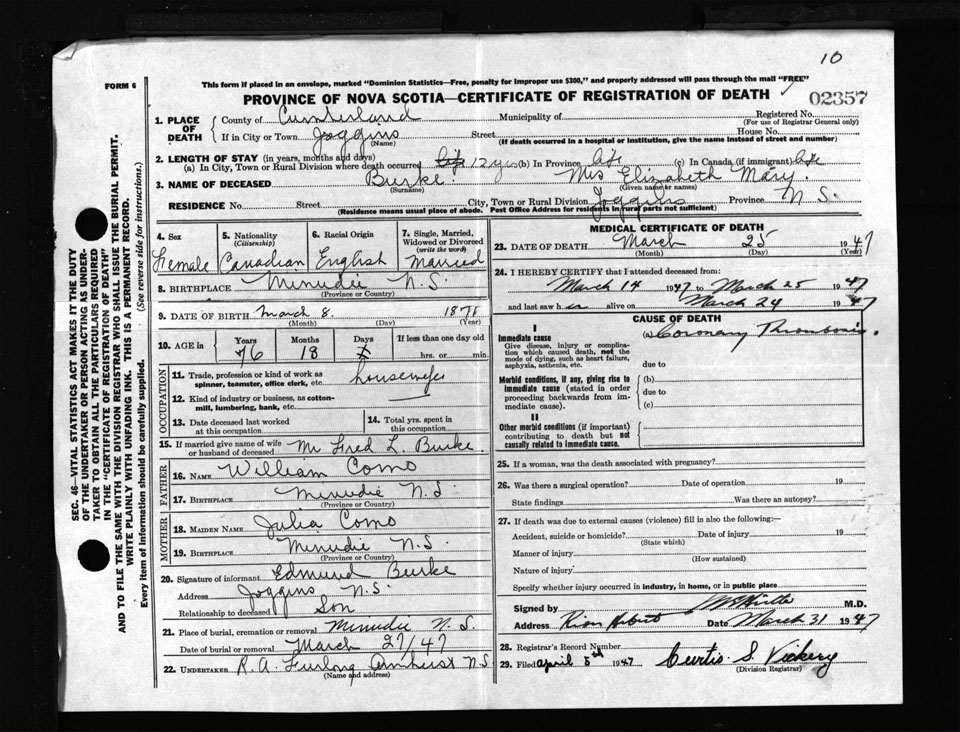 10
This form if placed in an envelope, marked "Dominion Statistics—Free, penalty for improper use $300," and properly addressed will pass through the mail "FREE"
FORM 6
PROVINCE OF NOVA SCOTIA—CERTIFICATE OF REGISTRATION OF DEATH
02357
SEC. 46—VITAL STATISTICS ACT MAKES IT THE DUTY
OF THE UNDERTAKER OR PERSON ACTING AS UNDER-
TAKER TO OBTAIN ALL THE PARTICULARS REQUIRED
IN THE "CERTIFICATE OF REGISTRATION OF DEATH"
AND TO FILE THE SAME WITH THE DIVISION REGISTRAR WHO SHALL ISSUE THE BURIAL PERMIT.
WRITE PLAINLY WITH UNFADING INK. THIS IS A PERMANENT RECORD.
Every item of information should be carefully supplied. (See reverse side for instructions.)
1. PLACE OF DEATH County of Cumberland Municipality of Registered No.
(For use of Registrar General only)
If in City or Town Joggins Street House No.
(Name) (If death occurred in a hospital or institution, give the name instead of street and number)
2. LENGTH OF STAY (in years, months and days)
(a) In City, Town or Rural Division where death occurred life 12 yrs (b) In Province life (c) In Canada (if immigrant) life
3. NAME OF DECEASED Burke. Mrs Elizabeth Mary.
(Surname) (Given name or names)
RESIDENCE No. Street City, Town or Rural Division Joggins Province N S.
(Residence means usual place of abode. Post Office Address for residents in rural parts not sufficient)
4. Sex
Female
5. Nationality
(Citizenship)
Canadian
6. Racial Origin
English
7. Single, Married,
Widowed or Divorced
(write the word)
Married
8. BIRTHPLACE Minudie N S.
(Province or Country)
9. DATE OF BIRTH March 8. 1871
(Month) (Day) (Year)
10. AGE in Years Months Days If less than one day old
76 18 hrs. or min.
OCCUPATION
11. Trade, profession or kind of work as
spinner, teamster, office clerk, etc. housewife
12. Kind of industry or business, as cotton-
mill, lumbering, bank, etc.
13. Date deceased last worked
at this occupation
14. Total yrs. spent in
this occupation
15. If married give name of wife
or husband of deceased Mr Fred L. Burke.
FATHER
16. NAME William Como
17. BIRTHPLACE Minudie N.S.
(Province or Country)
MOTHER
18. MAIDEN NAME Julia Como
19. BIRTHPLACE Minudie N.S.
(Province or Country)
20. Signature of informant Edmund Burke
Address Joggins N.S.
Relationship to deceased Son
21. Place of burial, cremation or removal Minudie N. S.
Date of burial or removal March 27/47
22. UNDERTAKER R. A. Furlong Amherst N.S.
(Name and address)
MEDICAL CERTIFICATE OF DEATH
23. DATE OF DEATH March 25 1947
(Month) (Day) (Year)
24. I HEREBY CERTIFY that I attended deceased from:
March 14 1947 to March 25 1947
and last saw h er alive on March 24 1947
CAUSE OF DEATH
I
Immediate cause
Give disease, injury or complica-
tion which caused death, not the
mode of dying, such as heart failure,
asphyxia, asthenia, etc.
(a) Coronary Thrombosis.
due to
Morbid conditions, if any, giving rise to
immediate cause (stated in order
proceeding backwards from im-
mediate cause).
(b)
due to
(c)
II
Other morbid conditions (if important)
contributing to death but not
causally related to immediate cause.
25. If a woman, was the death associated with pregnancy?
26. Was there a surgical operation? Date of operation 19
State findings Was there an autopsy?
27. If death was due to external causes (violence) fill in also the following:—
Accident, suicide or homicide? Date of injury 19
(State which)
Manner of injury
(How sustained)
Nature of injury
Specify whether injury occurred in industry, in home, or in public place
Signed by M.D.
Address River Hebert Date March 31 1947
28. Registrar's Record Number
29. Filed April 5th 1947 Curtis S. Vickery
(Division Registrar)